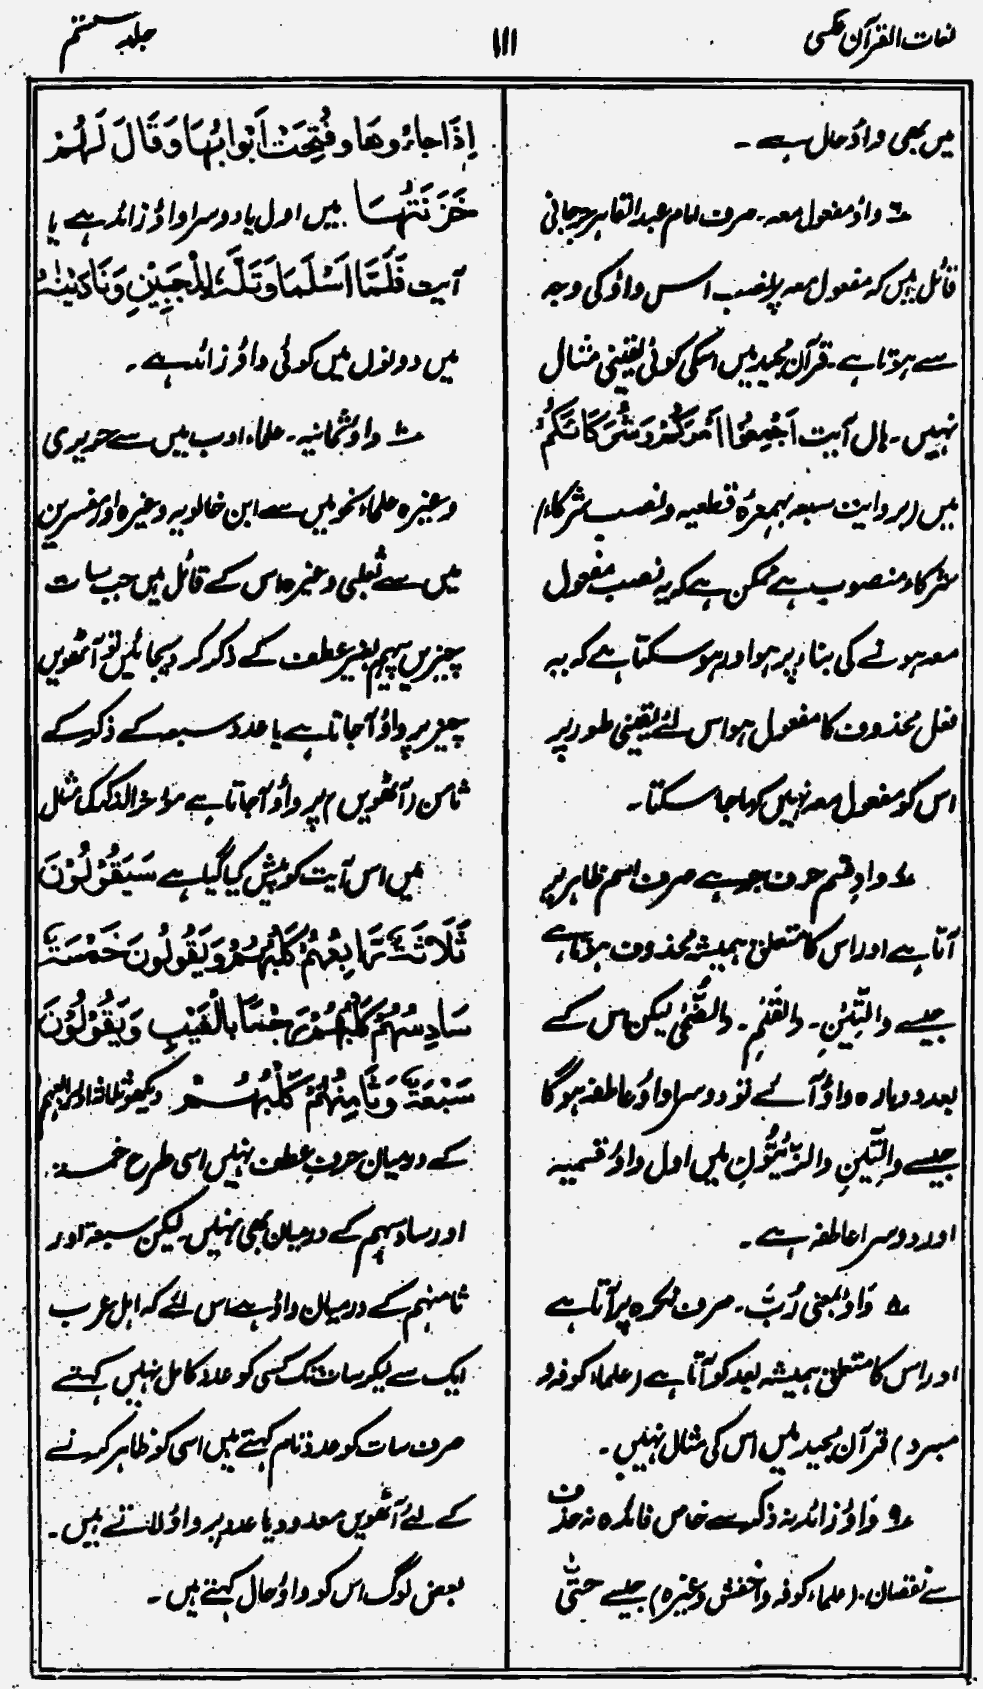 لغات القرآن عکسی
۱۱۱
جلد ششم
میں بھی واؤ حال ہے ۔
۶ واؤ مفعول معہ ۔ صرف امام عبدالقاہر جرجانی
قائل ہیں کہ مفعول معہ پر نصب اس واؤ کی وجہ
سے ہوتا ہے ۔ قرآن مجید میں اسکی کوئی یقینی مثال
نہیں ۔ ہاں آیت اَجْمِعُوْا اَمْرَكُمْ وَشُرَكَائَكُمْ
میں (بر روایت سبعہ بہمزۂ قطعیہ و نصب شرکاء)
شرکاء منصوب ہے ممکن ہے کہ یہ نصب مفعول
معہ ہونے کی بناء پر ہو اور ہو سکتا ہے کہ یہ
فعل محذوف کا مفعول ہو اس لئے یقینی طور پر
اس کو مفعول معہ نہیں کہا جا سکتا ۔
۷ واوِ قسم حرف جر ہے صرف اسم ظاہر پر
آتا ہے اور اس کا متعلق ہمیشہ محذوف ہوتا ہے
جیسے والتِّیْنِ ۔ والقَلَمِ ۔ والضُّحٰی لیکن اس کے
بعد دوبارہ واؤ آئے تو دوسرا واؤ عاطفہ ہوگا
جیسے والتِّیْنِ والزَّیْتُوْنِ میں اول واؤ قسمیہ
اور دوسرا عاطفہ ہے ۔
۸ وَاوٗ بمعنی رُبَّ ۔ صرف نکرہ پر آتا ہے
اور اس کا متعلق ہمیشہ بعد کو آتا ہے (علماء کوفہ و
مبرد) قرآن مجید میں اس کی مثال نہیں ۔
۹ وَاؤ زائد نہ ذکر سے خاص فائدہ نہ حذف
سے نقصان ۔ (علماء کوفہ و اخفش وغیرہ) جیسے حتّٰی
اِذَا جاءُوهَا وفُتِحَتْ اَبْوَابُهَا وَقَالَ لَهُمْ
خَزَنَتُهَا میں اول یا دوسرا واؤ زائد ہے یا
آیت فَلَمَّا اَسْلَمَا وَتَلَّهٗ لِلْجَبِيْنِ وَنَادَيْنٰهُ
میں دونوں میں کوئی واؤ زائد ہے ۔
۱۰ واوِ ثمانیہ ۔ علماء ادب میں سے حریری
وغیرہ علماء نحو میں سے ابن خالویہ وغیرہ اور مفسرین
میں سے ثعلبی وغیرہ اس کے قائل ہیں جب سات
چیزیں پیہم بغیر عطف کے ذکر کر دیجائیں تو آٹھویں
چیز پر واؤ آجاتا ہے یا عدد سبعہ کے ذکر کے
ثامن (آٹھویں) پر واؤ آجاتا ہے مؤخر الذکر کی مثل
میں اس آیت کو پیش کیا گیا ہے سَيَقُوْلُوْنَ
ثَلَاثَةٌ رَّابِعُهُمْ كَلْبُهُمْ وَيَقُولُونَ خَمْسَةٌ
سَادِسُهُمْ كَلْبُهُمْ رَجْمًا بِالْغَيْبِ وَيَقُوْلُوْنَ
سَبْعَةٌ وَّثَامِنُهُمْ كَلْبُهُمْ دیکھو ثلاثۃ اور رابعہم
کے درمیان حرفِ عطف نہیں اسی طرح خمسۃ
اور سادسہم کے درمیان بھی نہیں لیکن سبعۃ اور
ثامنہم کے درمیان واؤ ہے اس لئے کہ اہل عرب
ایک سے لیکر سات تک کسی کو عدد کامل نہیں کہتے
صرف سات کو عدد تام کہتے ہیں اسی کو ظاہر کرنے
کے لئے آٹھویں معدود یا عدد پر واؤ لاتے ہیں ۔
بعض لوگ اس کو واؤ حال کہتے ہیں ۔